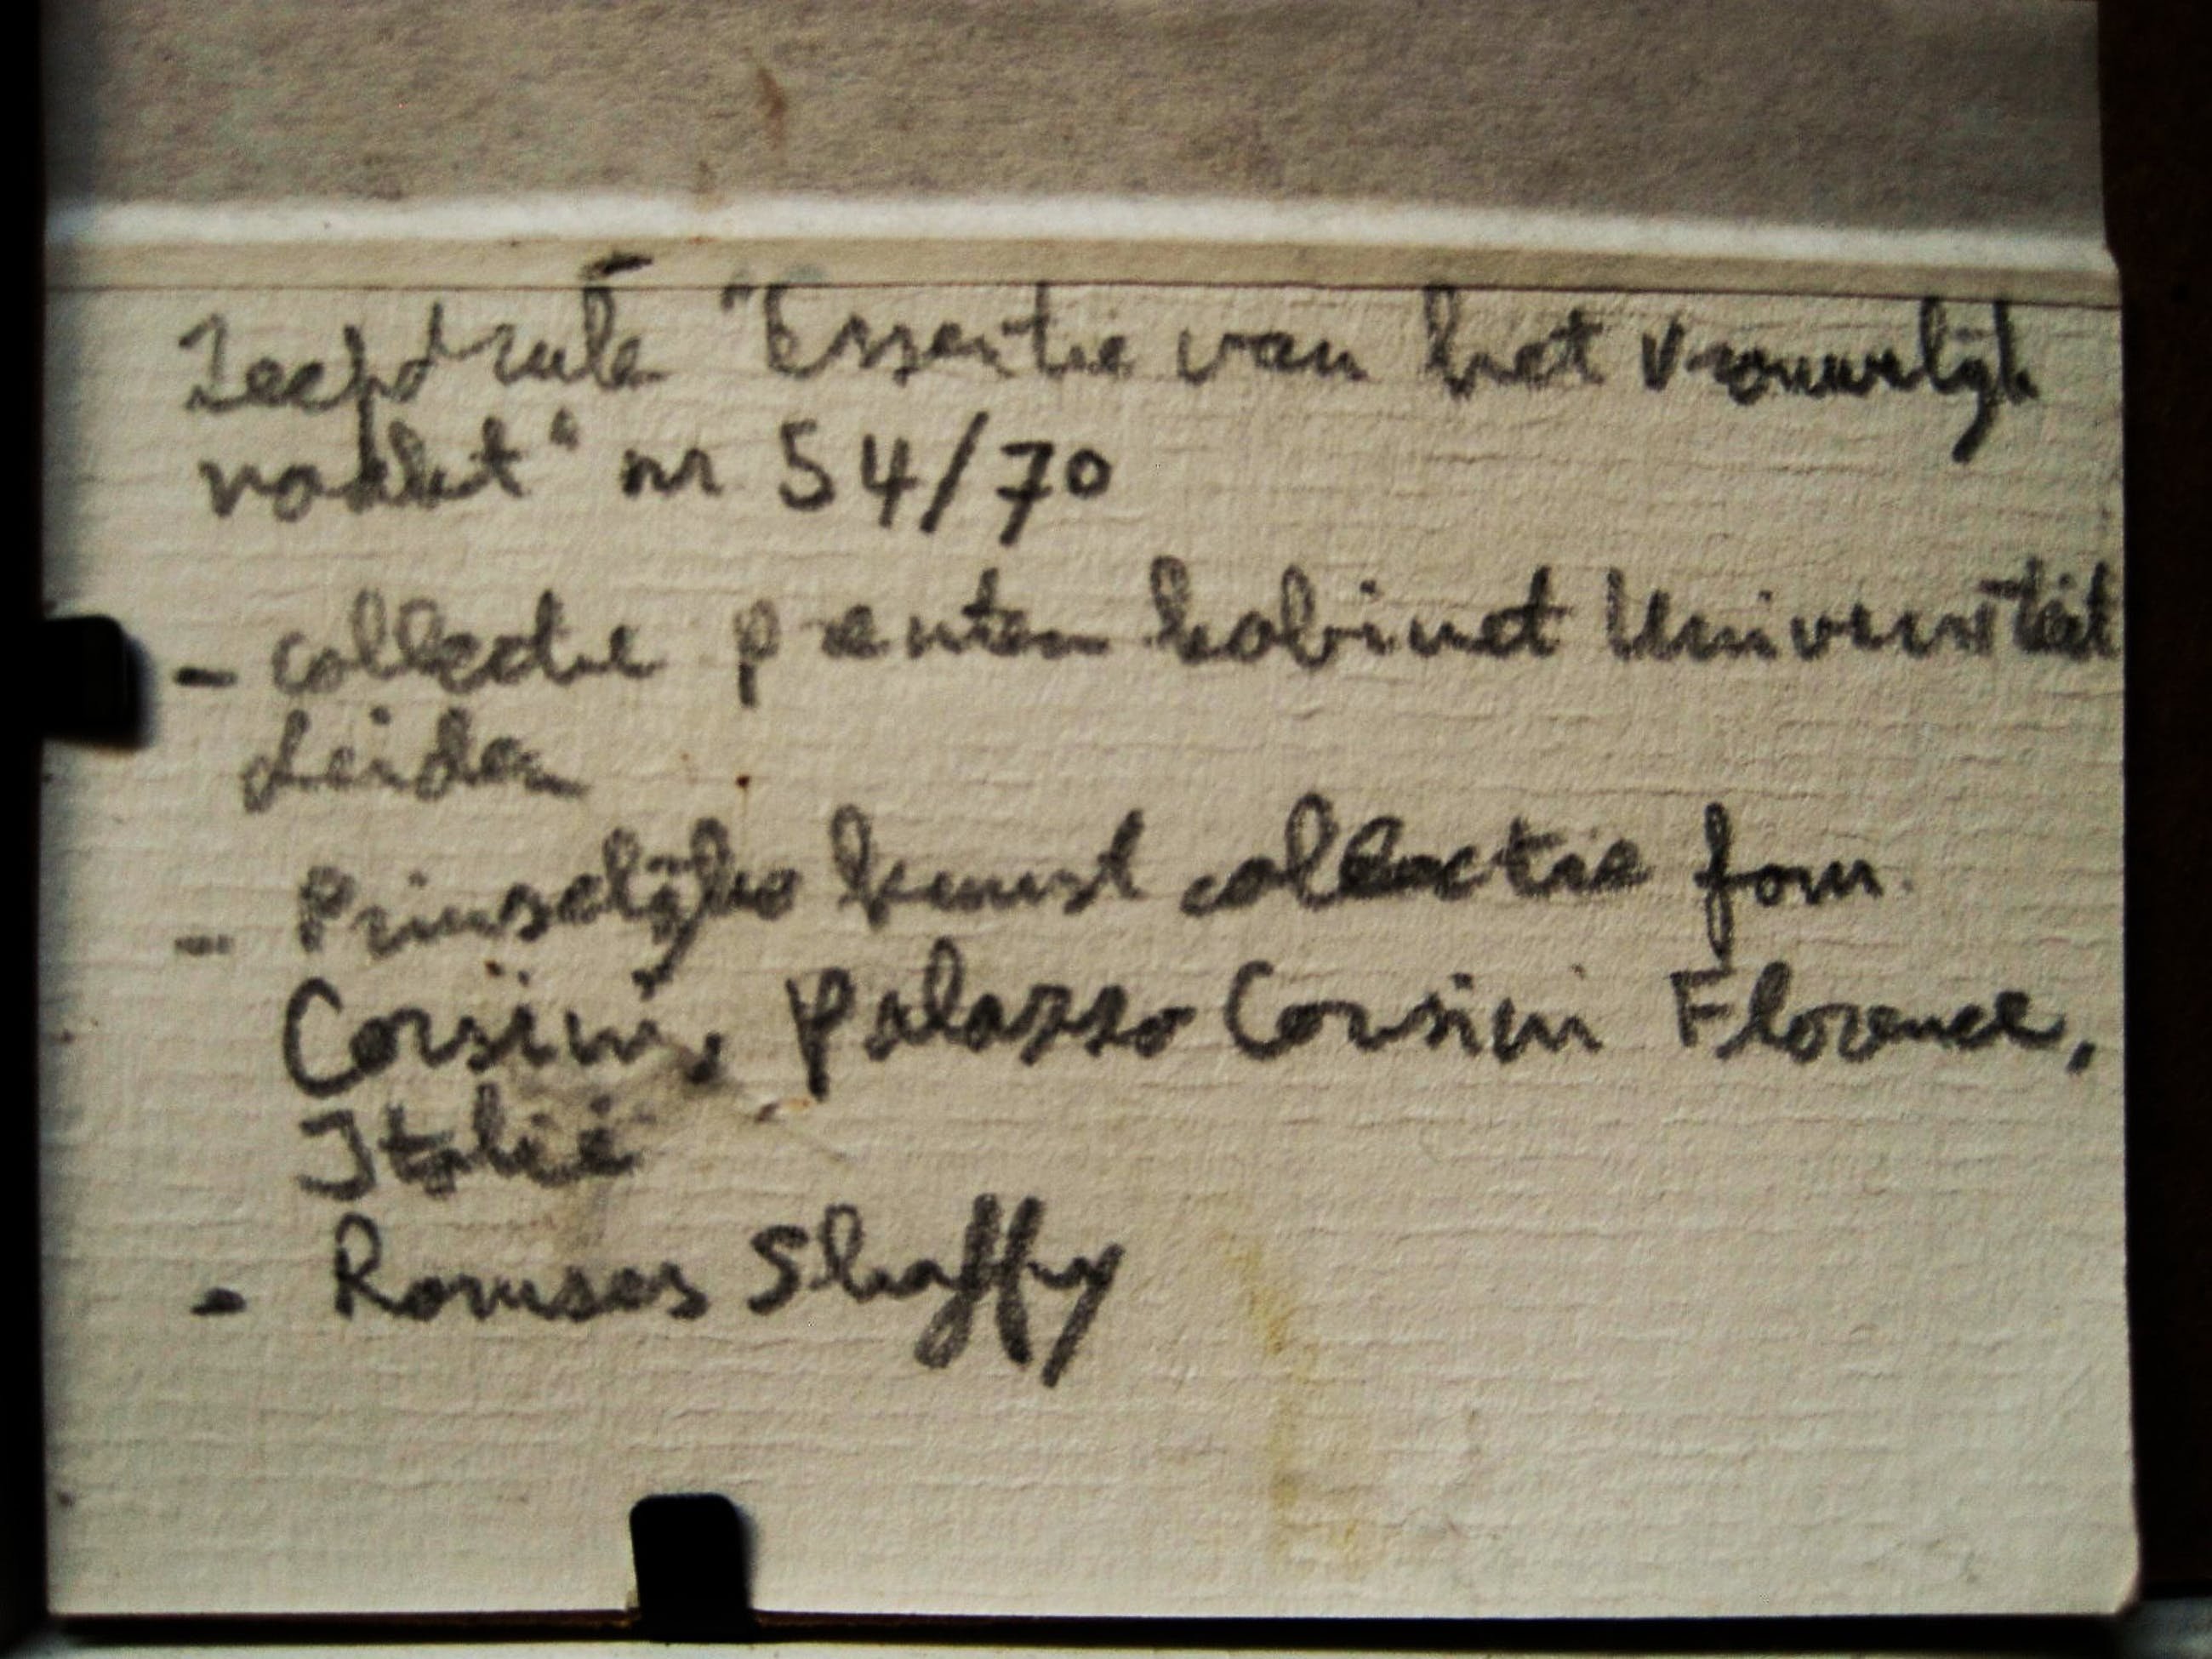 Zeefdruk "Essentie van het vrouwelijk
naakt" nr 54/70
- collectie prentenkabinet Universiteit
Leiden
- Prinselijke kunst collectie fam.
Corsini, Palazzo Corsini Florence,
Italië
- Ramses Shaffy